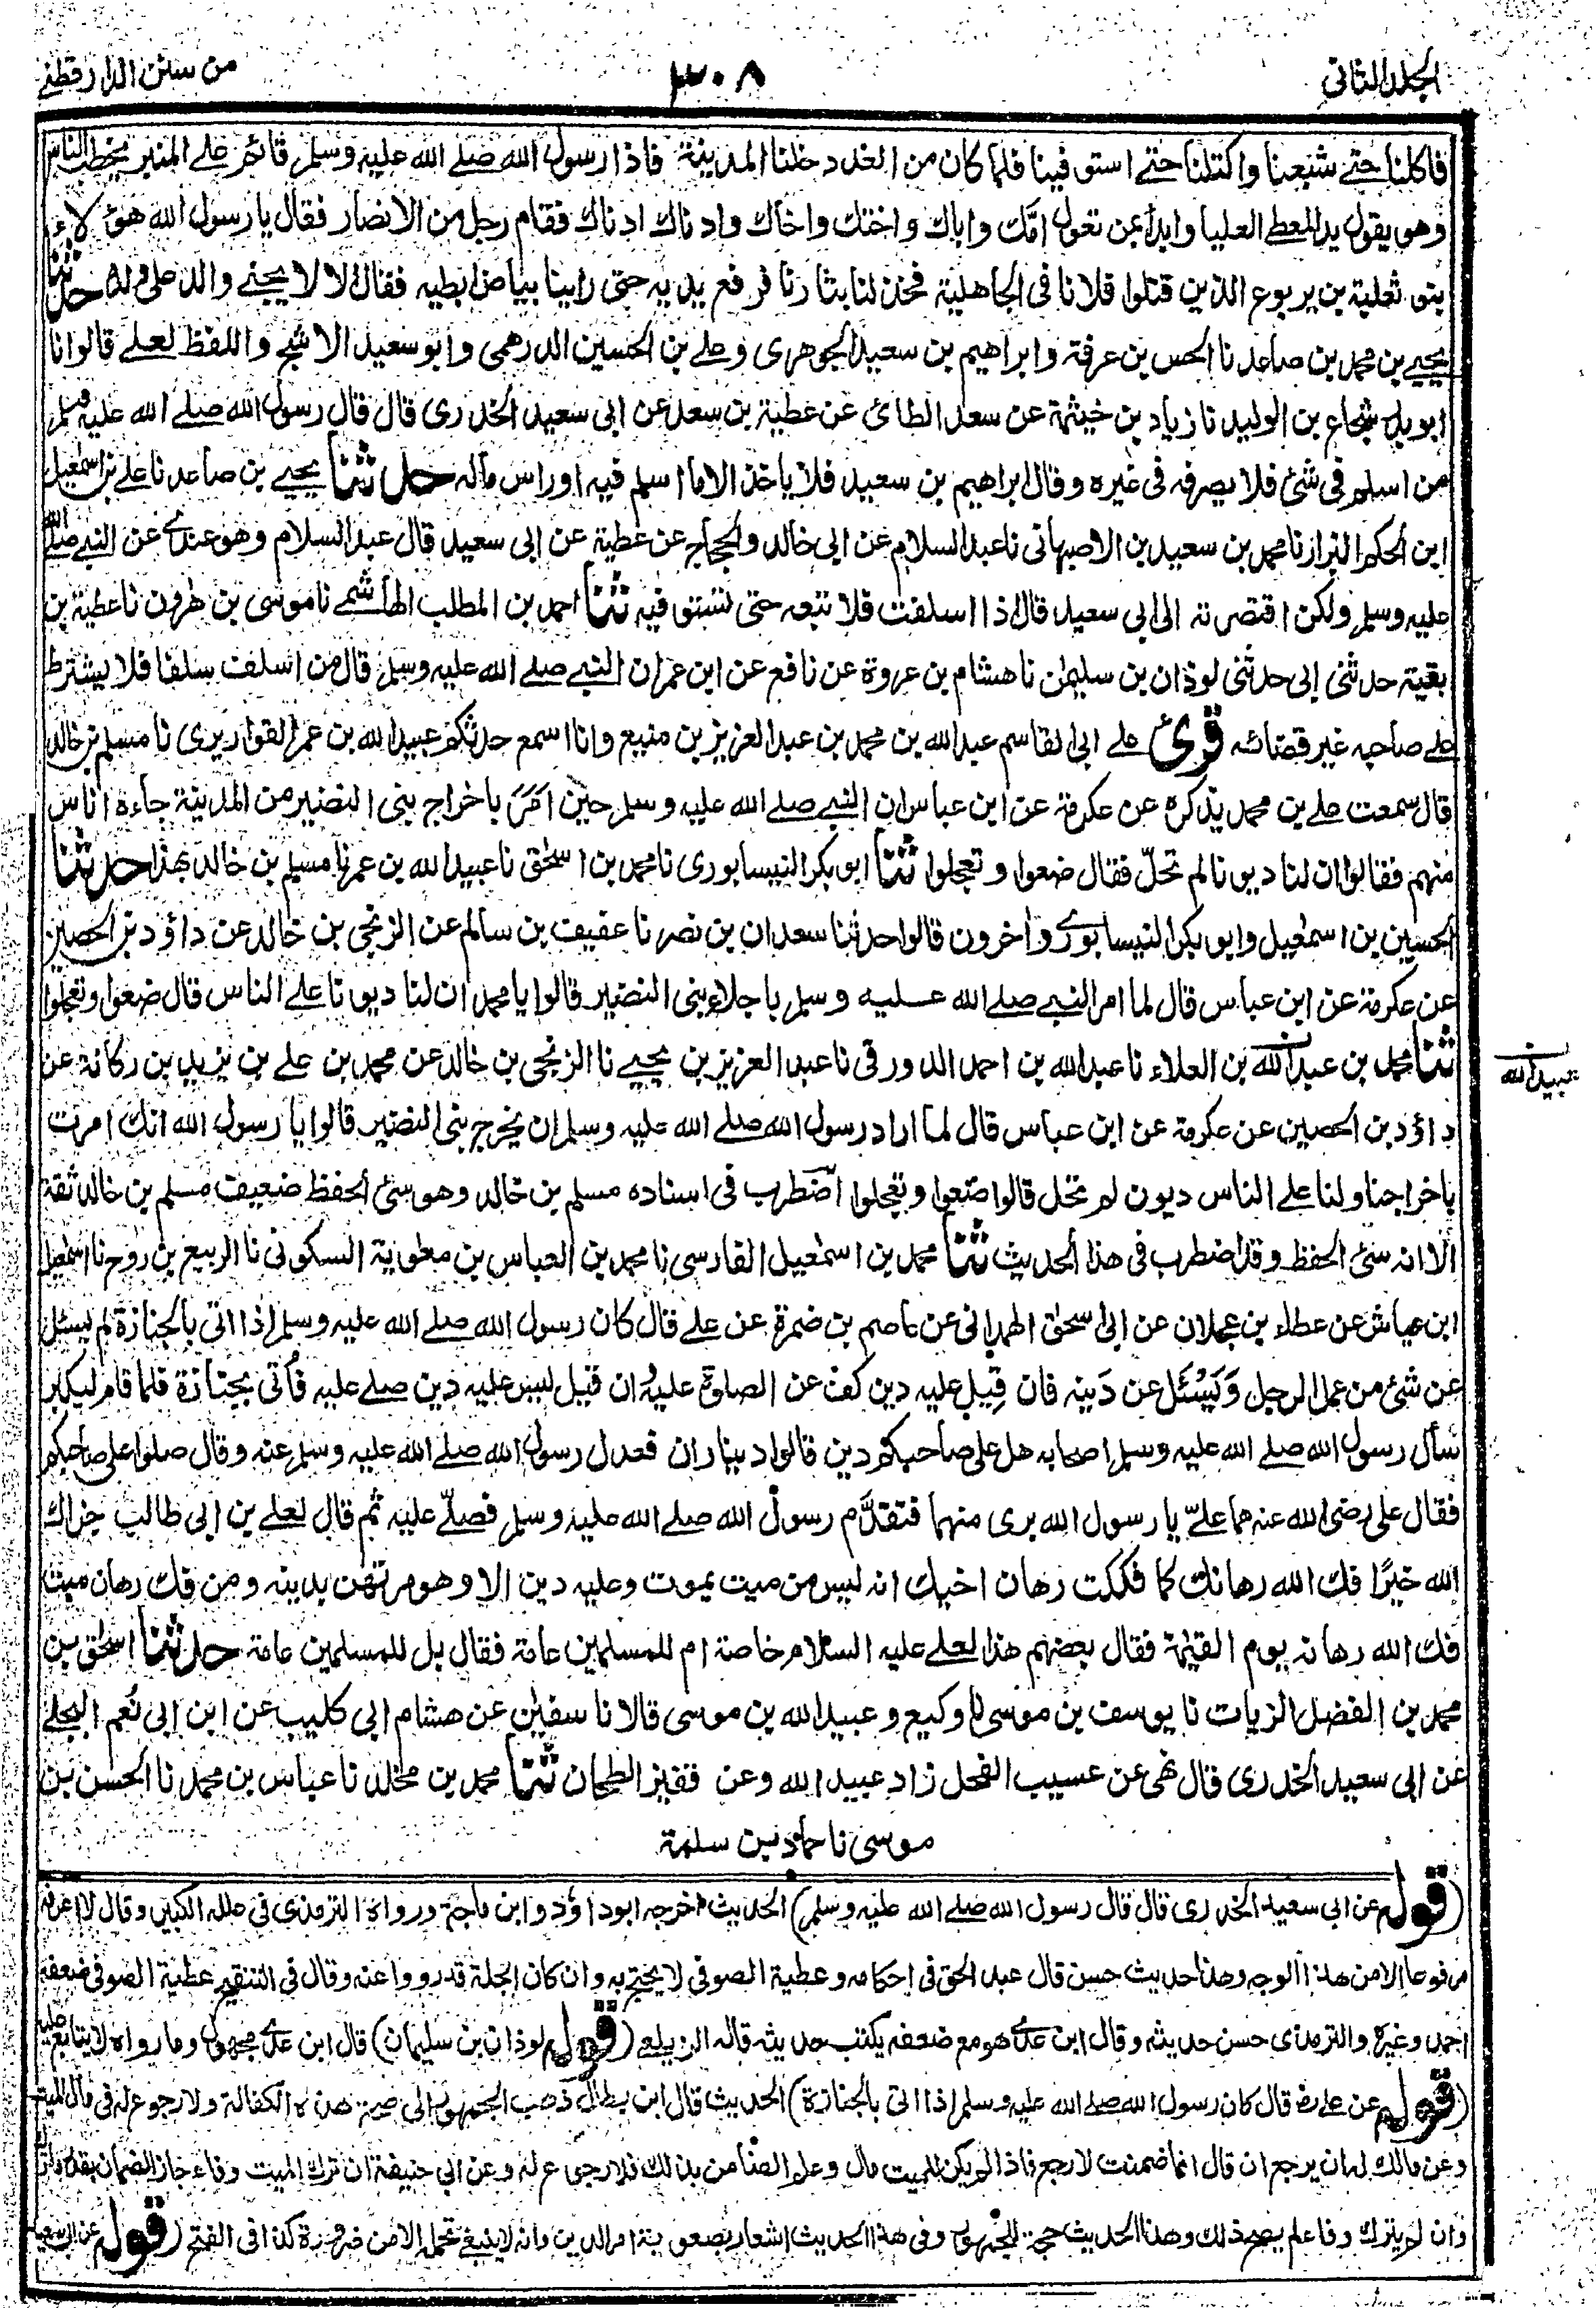 الجلد الثاني
٣٠٨
من سنن الدارقطني
فاكلنا حتى شبعنا واكتلنا حتى استوفينا فلما كان من الغد دخلنا المدينة فاذا رسول الله صلى الله عليه وسلم قائم على المنبر يخطب الناس
وهو يقول يد المعطي العليا وابدأ بمن تعول امّك واباك واختك واخاك وادناك ادناك فقام رجل من الانصار فقال يا رسول الله هؤلاء
بنو ثعلبة بن يربوع الذين قتلوا فلانا في الجاهلية فخذ لنا بثارنا فرفع يديه حتى راينا بياض ابطيه فقال الا لا يجني والد على ولد حدثنا
يحيى بن محمد بن صاعد نا الحسن بن عرفة وابراهيم بن سعيد الجوهري وعلي بن الحسين الدرهمي وابو سعيد الاشج واللفظ لعلي قالوا نا
ابو بدر شجاع بن الوليد نا زياد بن خيثمة عن سعد الطائ عن عطية بن سعد عن ابي سعيد الخدري قال قال رسول الله صلى الله عليه وسلم
من اسلم في شئ فلا يصرفه في غيره وقال ابراهيم بن سعيد فلا ياخذ الا ما اسلم فيه او راس ماله حدثنا يحيى بن صاعد نا علي بن اسمعيل
ابن الحكم البزاز نا محمد بن سعيد بن الاصبهاني نا عبد السلام عن ابي خالد والحجاج عن عطية عن ابي سعيد قال عبد السلام وهو عندي عن النبي صلى الله
عليه وسلم ولكن اقتصرته الى ابي سعيد قال اذا اسلفت فلا تبعه حتى تستوفيه ثنا احمد بن المطلب الهاشمي نا موسى بن هرون نا عطية بن
بقية حدثني ابي حدثني لوذان بن سليمن نا هشام بن عروة عن نافع عن ابن عمران النبي صلى الله عليه وسلم قال من اسلف سلفا فلا يشترط
على صاحبه غير قضائه قرئ على ابي القاسم عبد الله بن محمد بن عبد العزيز بن منيع وانا اسمع حدثكم عبيد الله بن عمر القواريري نا مسلم بن خالد
قال سمعت علي بن محمد يذكره عن عكرمة عن ابن عباس ان النبي صلى الله عليه وسلم حين اَمَرَ باخراج بني النضير من المدينة جاءه اناس
منهم فقالوا ان لنا ديونا لم تحلّ فقال ضعوا وتعجلوا ثنا ابو بكر النيسابوري نا محمد بن اسحق نا عبيد الله بن عمر نا مسلم بن خالد بهذا حدثنا
الحسين بن اسمعيل وابو بكر النيسابوري واخرون قالوا حدثنا سعدان بن نصر نا عفيف بن سالم عن الزنجي بن خالد عن داؤد بن الحصين
عن عكرمة عن ابن عباس قال لما امر النبي صلى الله عليه وسلم باجلاء بني النضير قالوا يا محمد ان لنا ديونا على الناس قال ضعوا وتعجلوا
ثنا محمد بن عبد الله بن العلاء نا عبد الله بن احمد الدورقي نا عبد العزيز بن يحيى نا الزنجي بن خالد عن محمد بن علي بن يزيد بن ركانة عن
ن عبيد الله
داؤد بن الحصين عن عكرمة عن ابن عباس قال لما اراد رسول الله صلى الله عليه وسلم ان يخرج بني النضير قالوا يا رسول الله انك امرت
باخراجنا ولنا على الناس ديون لم تحل قالوا ضعوا وتعجلوا اضطرب في اسناده مسلم بن خالد وهو سئ الحفظ ضعيف مسلم بن خالد ثقة
الا انه سئ الحفظ وقد اضطرب في هذا الحديث ثنا محمد بن اسمعيل الفارسي نا محمد بن العباس بن معوية السكوني نا الربيع بن روح نا اسمعيل
ابن عياش عن عطاء بن عجلان عن ابي اسحق الهمداني عن عاصم بن ضمرة عن علي قال كان رسول الله صلى الله عليه وسلم اذا اتى بالجنازة لم يسئل
عن شئ من عمل الرجل وَيَسْئَل عن دَينه فان قِيل عليه دين كف عن الصلوة عليه وان قيل ليس عليه دين صلى عليه فأُتى بجنازة فلما قام ليكبر
سأل رسول الله صلى الله عليه وسلم اصحابه هل على صاحبكم دين قالوا ديناران فعدل رسول الله صلى الله عليه وسلم عنه وقال صلوا على صاحبكم
فقال علي رضي الله عنه هما عليّ يا رسول الله برى منهما فتقدَّم رسول الله صلى الله عليه وسلم فصلّى عليه ثم قال لعلي بن ابي طالب جزاك
الله خيرًا فك الله رهانك كما فككت رهان اخيك انه ليس من ميت يموت وعليه دين الا وهو مرتهن بدينه ومن فك رهان ميت
فك الله رهانه يوم القيٰمة فقال بعضهم هذا لعلي عليه السلام خاصة ام للمسلمين عامة فقال بل للمسلمين عامة حدثنا اسحق بن
محمد بن الفضل الزيات نا يوسف بن موسى نا وكيع وعبيد الله بن موسى قالا نا سفيٰن عن هشام ابي كليب عن ابن ابي نُعم البجلي
عن ابي سعيد الخدري قال نهى عن عسيب الفحل زاد عبيد الله وعن قفيز الطحان ثنا محمد بن مخلد نا عباس بن محمد نا الحسن بن
موسى نا حماد بن سلمة
(قوله عن ابي سعيد الخدري قال قال رسول الله صلى الله عليه وسلم) الحديث اخرجه ابو داؤد وابن ماجة ورواه الترمذي في علله الكبير وقال لا اعرفه
مرفوعا الا من هذا الوجه وهذا حديث حسن قال عبد الحق في احكامه وعطية العوفي لا يحتج به وان كان الجلة قد رووا عنه وقال في التنقيح عطية العوفي ضعفه
احمد وغيره والترمذي حسن حديثه وقال ابن عدي هو مع ضعفه يكتب حديثه قاله الزيلعي (قوله لوذان بن سليمان) قال ابن عدي مجهول وما رواه لا يتابع عليه
(قوله عن علي رض قال كان رسول الله صلى الله عليه وسلم اذا اتى بالجنازة) الحديث قال ابن بطال ذهب الجمهور الى صحة هذه الكفالة ولا رجوع له في مال الميت
وعن مالك له ان يرجع ان قال انما ضمنت لارجع فاذا لم يكن للميت مال وعلم الضامن بذلك فلا رجوع له وعن ابي حنيفة ان ترك الميت وفاء جاز الضمان بقدر ما ترك
وان لم يترك وفاء لم يصح ذلك وهذا الحديث حجة للجمهور وفي هذا الحديث اشعار بصعوبة امر الدين وانه لا ينبغي تحمله الا من ضرورة كذا في الفتح (قوله عن ابي سعيد